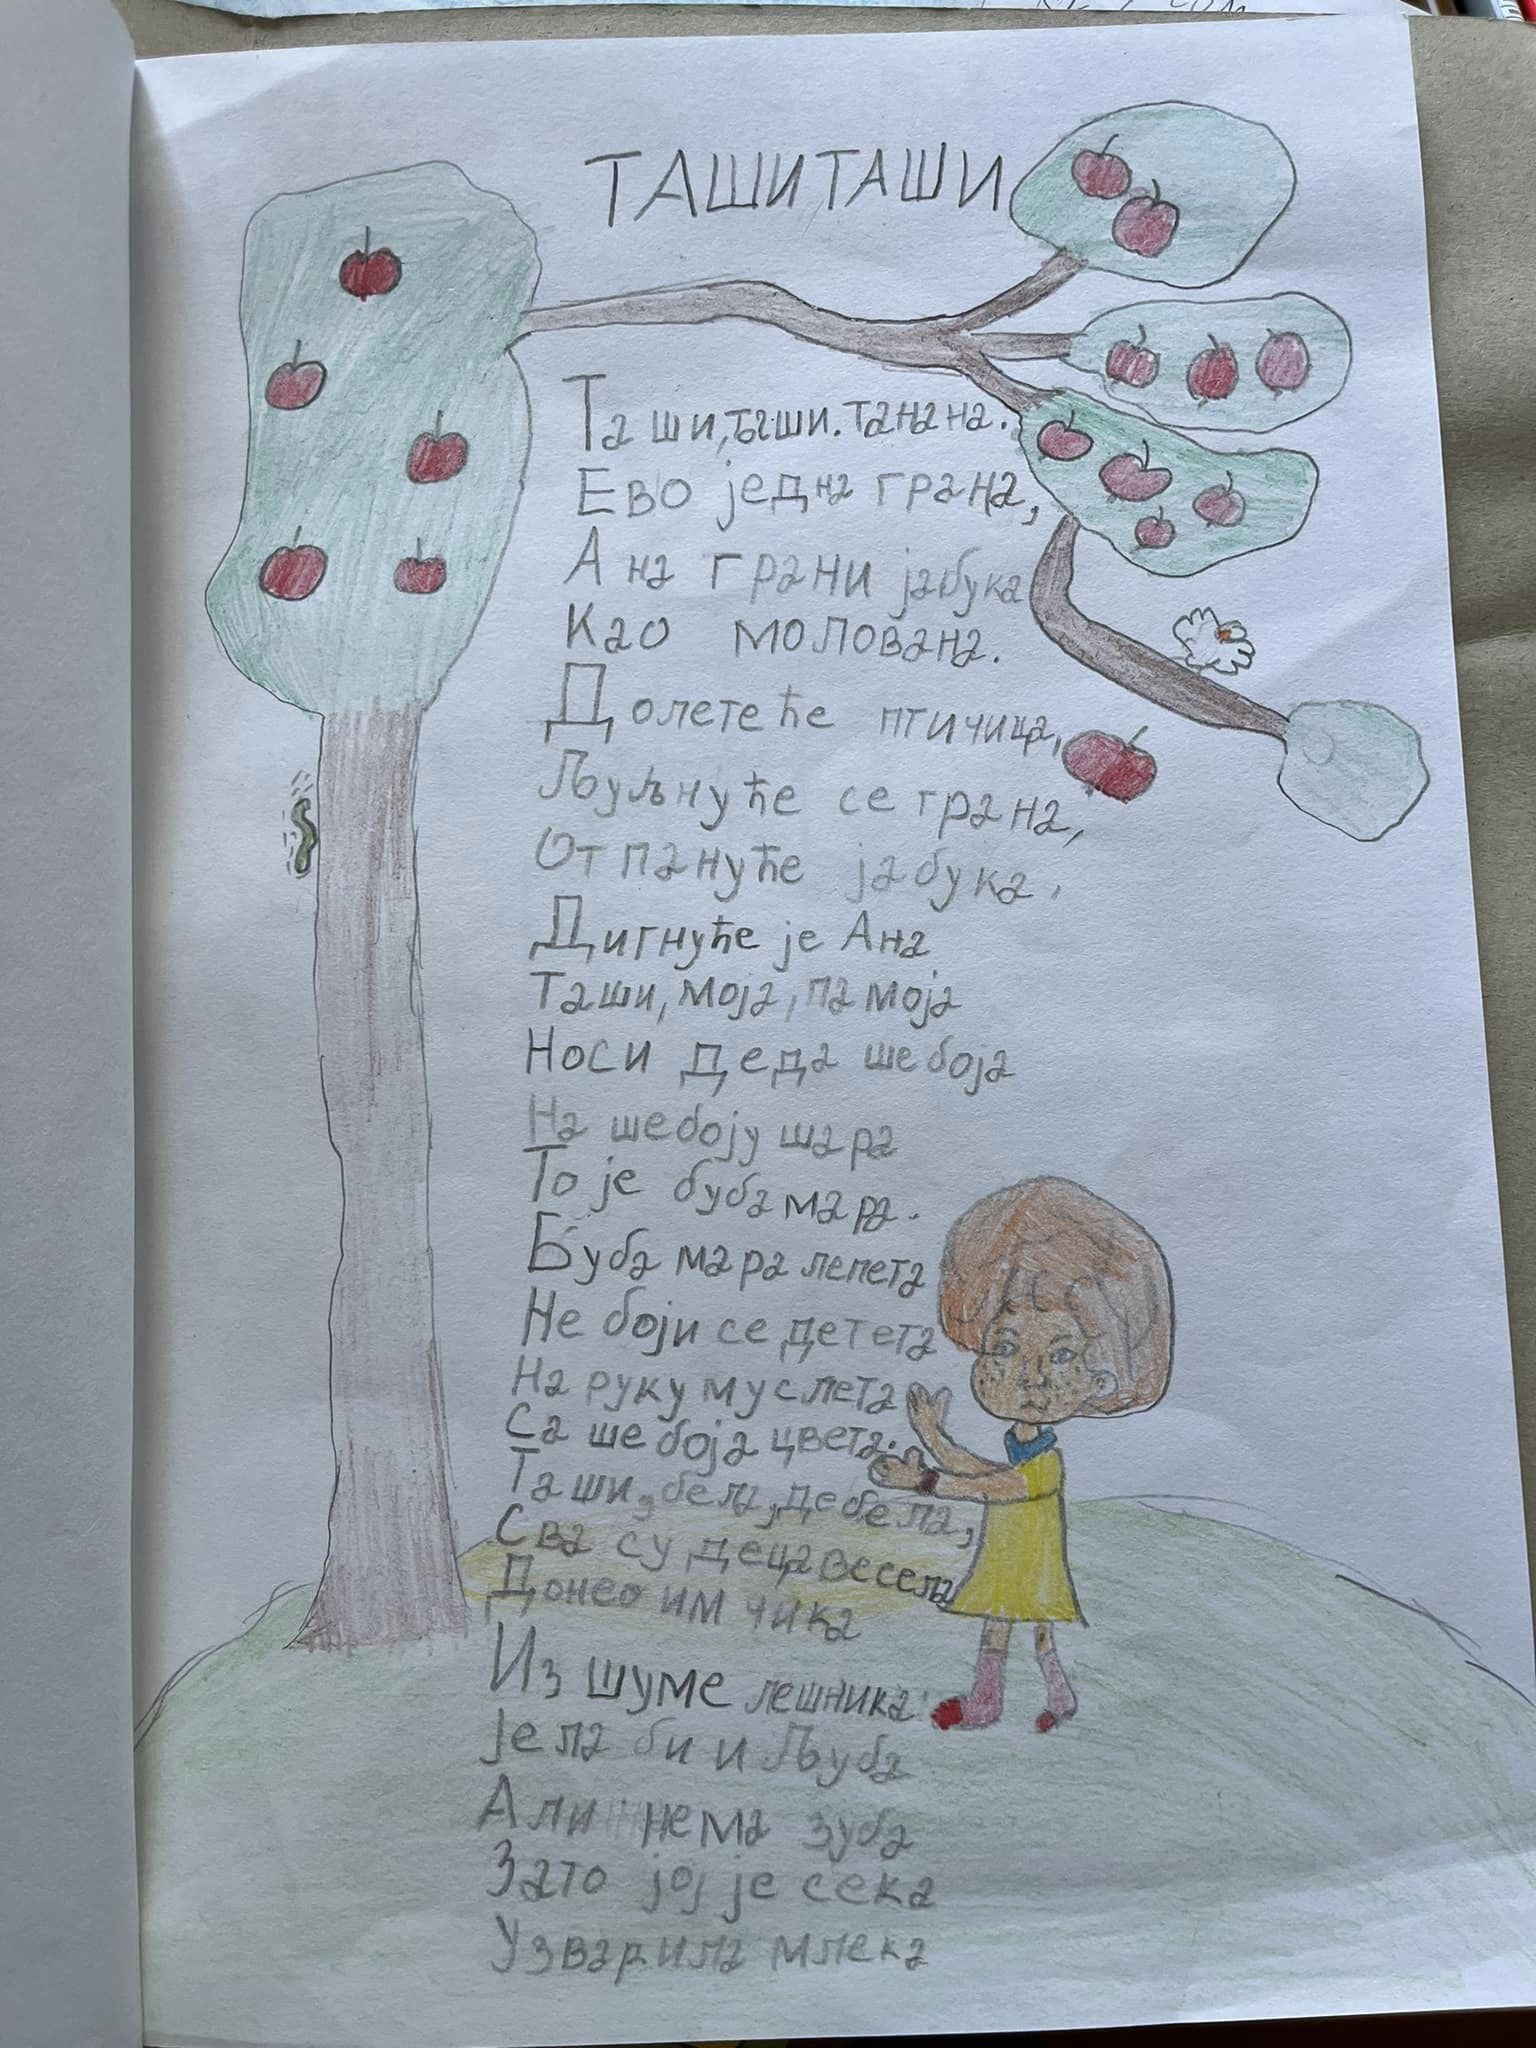 ТАШИ ТАШИ
Таши, таши. танана.
Ево једна грана,
А на грани јабука
Као молована.
Долетеће птичица,
Љуљнуће се грана,
Отпануће јабука.
Дигнуће је Ана
Таши, моја, па моја
Носи деда шебоја
На шебоју шара
То је буба мара.
Буба мара лепета
Не боји се детета
На руку му слета
Са шебоја цвета.
Таши, бела, дебела,
Сва су деца весела
Донео им чика
Из шуме лешника
Јела би и Љуба
Али нема зуба
Зато јој је сека
Узварила млека